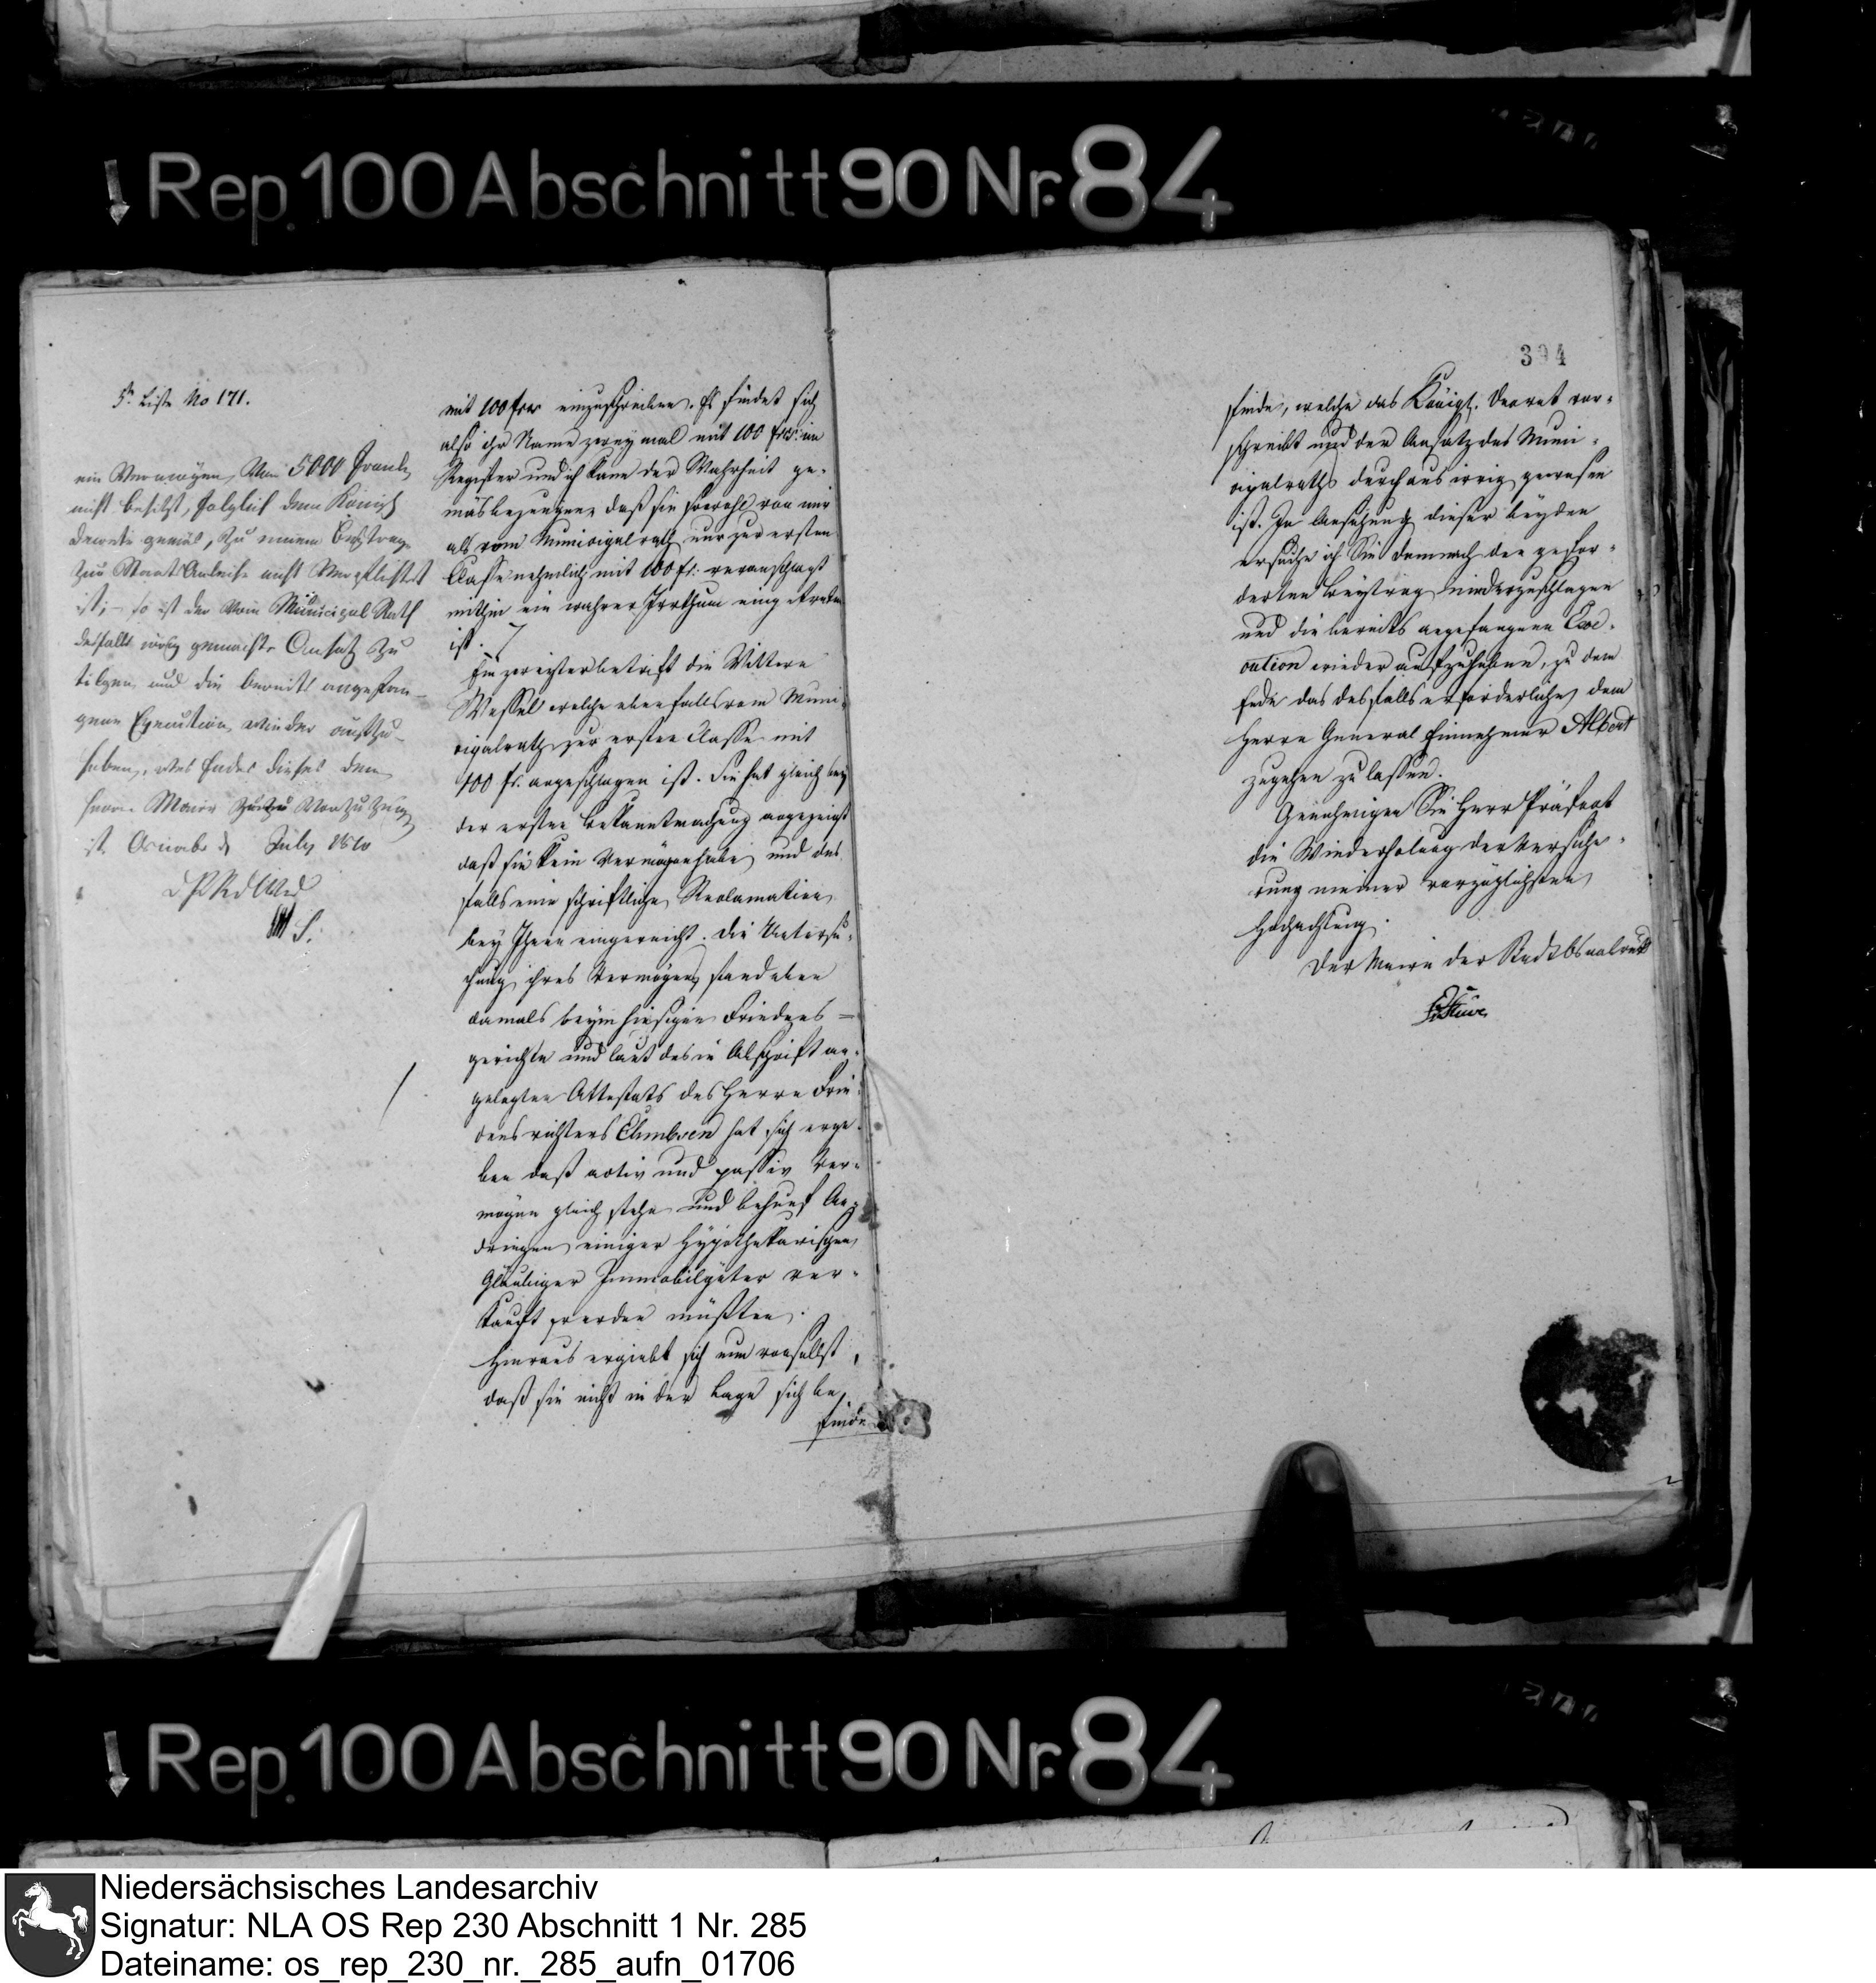 Rep. 100 Abschnitt 90 Nr. 84
5r. Liste No 171.
ein Vermögen von 5000 Franken
nicht besitzt, folglich dem Königl.
Decrete gemäs, zu einem Beytrage
zur Staats Anleihe nicht verpflichtet
ist; – so ist der vom Municipal Rath
desfalls irrig gemachte Ansatz zu
tilgen und die bereits angefan-
gene Execution wieder aufzu-
heben, des Endes dieses dem
Herrn Maire
ist. Osnabr d July 1810
D P R d W
S.
mit 100 frcs einzuschreiben. Es findet sich
also ihr Name zweymal mit 100 frcs: im
Register und ich kann der Wahrheit ge-
mäs bezeugen, daß sie sowohl von mir
als vom Municipalrath nur zur ersten
Classe nehmlich mit 100 fr: veranschlagt
mithin ein wahrer Irrthum eingetreten
ist.
Ein zweyter betrift die Wittwe
Wessel welche ebenfalls vom Muni-
cipalrath zur ersten Classe mit
100 fr. angeschlagen ist. Sie hat gleich bey
der ersten Bekanntmachung angezeigt
daß sie kein Vermögen habe, und des
falls eine schriftliche Reclamation
bey Ihnen eingereicht. Die Untersu-
chung ihres Vermögens stand eben
damals beym hiesigen Friedens =
gerichte und laut des in Abschrift an-
gelegten Attestats des Herrn Frie-
densrichters hat sich erge-
ben daß activ und passiv Ver-
mögen gleich stehe und behuef An-
dringen einiger Hypothekarischen
Gläubiger Immobilgüter ver-
kauft werden müßten.
Hieraus ergiebt sich nun von selbst,
daß sie nicht in der Lage sich be-
finde
394
finde, welche das Königl. Decret vor-
schreibt und der Ansatz des Muni-
cipalraths durchaus irrig gewesen
ist. In Ansehung dieser beyden
ersuche ich Sie demnach den gefor-
derten Beytrag niederzuschlagen
und die bereits angefangene Exe-
cution wieder aufzuheben, zu dem
Ende das desfalls erforderliche dem
Herrn General Einnehmer Albert
zugehen zu lassen.
Genehmigen Sie Herr Präfect
die Wiederholung der Versiche-
rung meiner vorzüglichsten
Hochachtung.
Der Maire der Stadt Osnabrück
Stüve
Rep. 100 Abschnitt 90 Nr. 84
Niedersächsisches Landesarchiv
Signatur: NLA OS Rep 230 Abschnitt 1 Nr. 285
Dateiname: os_rep_230_nr._285_aufn_01706